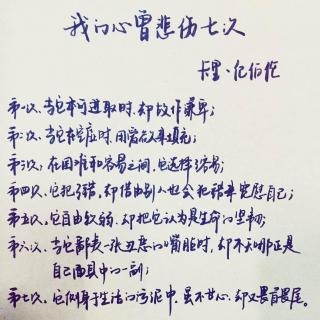 我的心曾悲伤七次
卡里·纪伯伦
第一次,当它本可进取时,却故作谦卑;
第二次,当它在空虚时,用爱欲来填充;
第三次,在困难和容易之间,它选择容易;
第四次,它犯了错,却借由别人也会犯错来宽慰自己;
第五次,它自由软弱,却把它认为是生命的坚韧;
第六次,当它鄙夷一张丑恶的嘴脸时,却不知那正是
自己面具中的一副;
第七次,它侧身于生活的污泥中,虽不甘心,却又畏首畏尾。